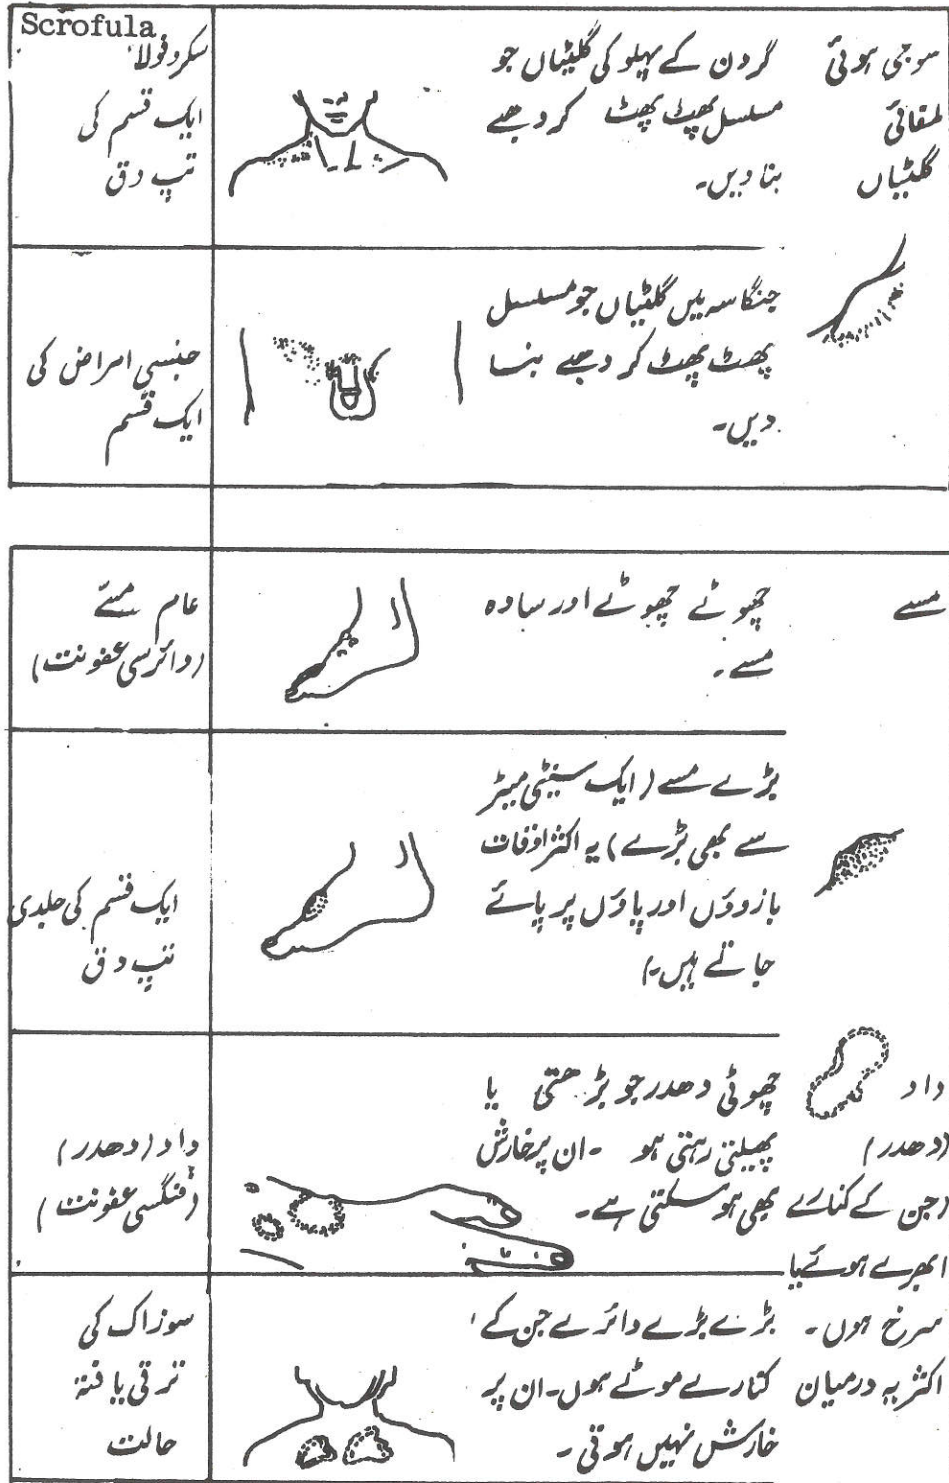 سوجی ہوئی
لمفائی
گلٹیاں
گردن کے پہلو کی گلیٹیاں جو
مسلسل پھٹ پھٹ کر دھبے
بنا دیں۔
Scrofula
سکروفولا
ایک قسم کی
تپِ دق
جنگاسہ میں گلٹیاں جو مسلسل
پھٹ پھٹ کر دھبے بنا
دیں۔
جنسی امراض کی
ایک قسم
مسے
چھوٹے چھوٹے اور سادہ
مسے۔
عام مسّے
(وائرسی عفونت)
بڑے مسے (ایک سینٹی میٹر
سے بھی بڑے) یہ اکثر اوقات
بازوؤں اور پاؤں پر پائے
جاتے ہیں۔)
ایک قسم کی جلدی
تپِ دق
داد
(دھدر)
(جن کے کنارے
ابھرے ہوئے یا
سرخ ہوں۔
اکثر یہ درمیان
چھوٹی دھدر جو بڑھتی یا
پھیلتی رہتی ہو۔ ان پر خارش
بھی ہو سکتی ہے۔
داد (دھدر)
(فنگسی عفونت)
بڑے بڑے دائرے جن کے
کنارے موٹے ہوں۔ ان پر
خارش نہیں ہوتی۔
سوزاک کی
ترقی یافتہ
حالت